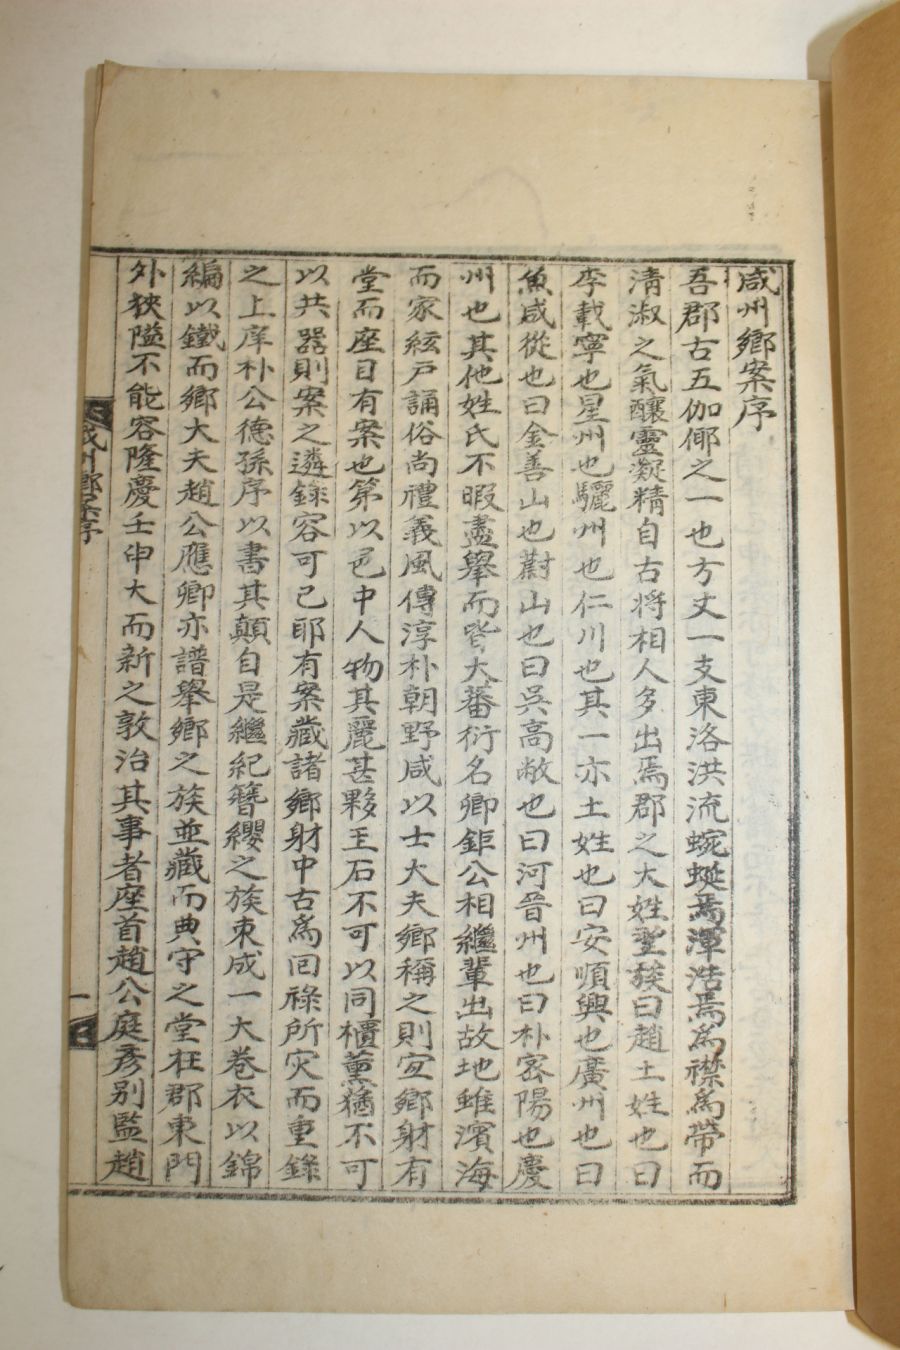 咸州鄉案序
吾郡古五伽倻之一也方丈一支東洛洪流蜿蜒焉渾浩焉爲襟爲帶而
淸淑之氣釀靈凝精自古將相人多出焉郡之大姓望族曰趙土姓也曰
李載寧也星州也驪州也仁川也其一亦土姓也曰安順興也廣州也曰
魚咸從也曰金善山也蔚山也曰吳高敞也曰河晉州也曰朴密陽也慶
州也其他姓氏不暇盡擧而皆大蕃衍名卿鉅公相繼輩出故地雖濱海
而家絃戶誦俗尙禮義風傳淳朴朝野咸以士大夫鄉稱之則宜鄉射有
堂而座目有案也第以邑中人物其麗甚夥玉石不可以同櫃薰蕕不可
以共器則案之遴錄容可已耶有案藏諸鄉射中古爲回祿所灾而重錄
之上庠朴公德孫序以書其顛自是繼紀簪纓之族束成一大卷衣以錦
編以鐵而鄉大夫趙公應卿亦譜擧鄉之族並藏而典守之堂在郡東門
外狹隘不能容隆慶壬申大而新之敦治其事者座首趙公庭彥別監趙
咸州鄉案序
一